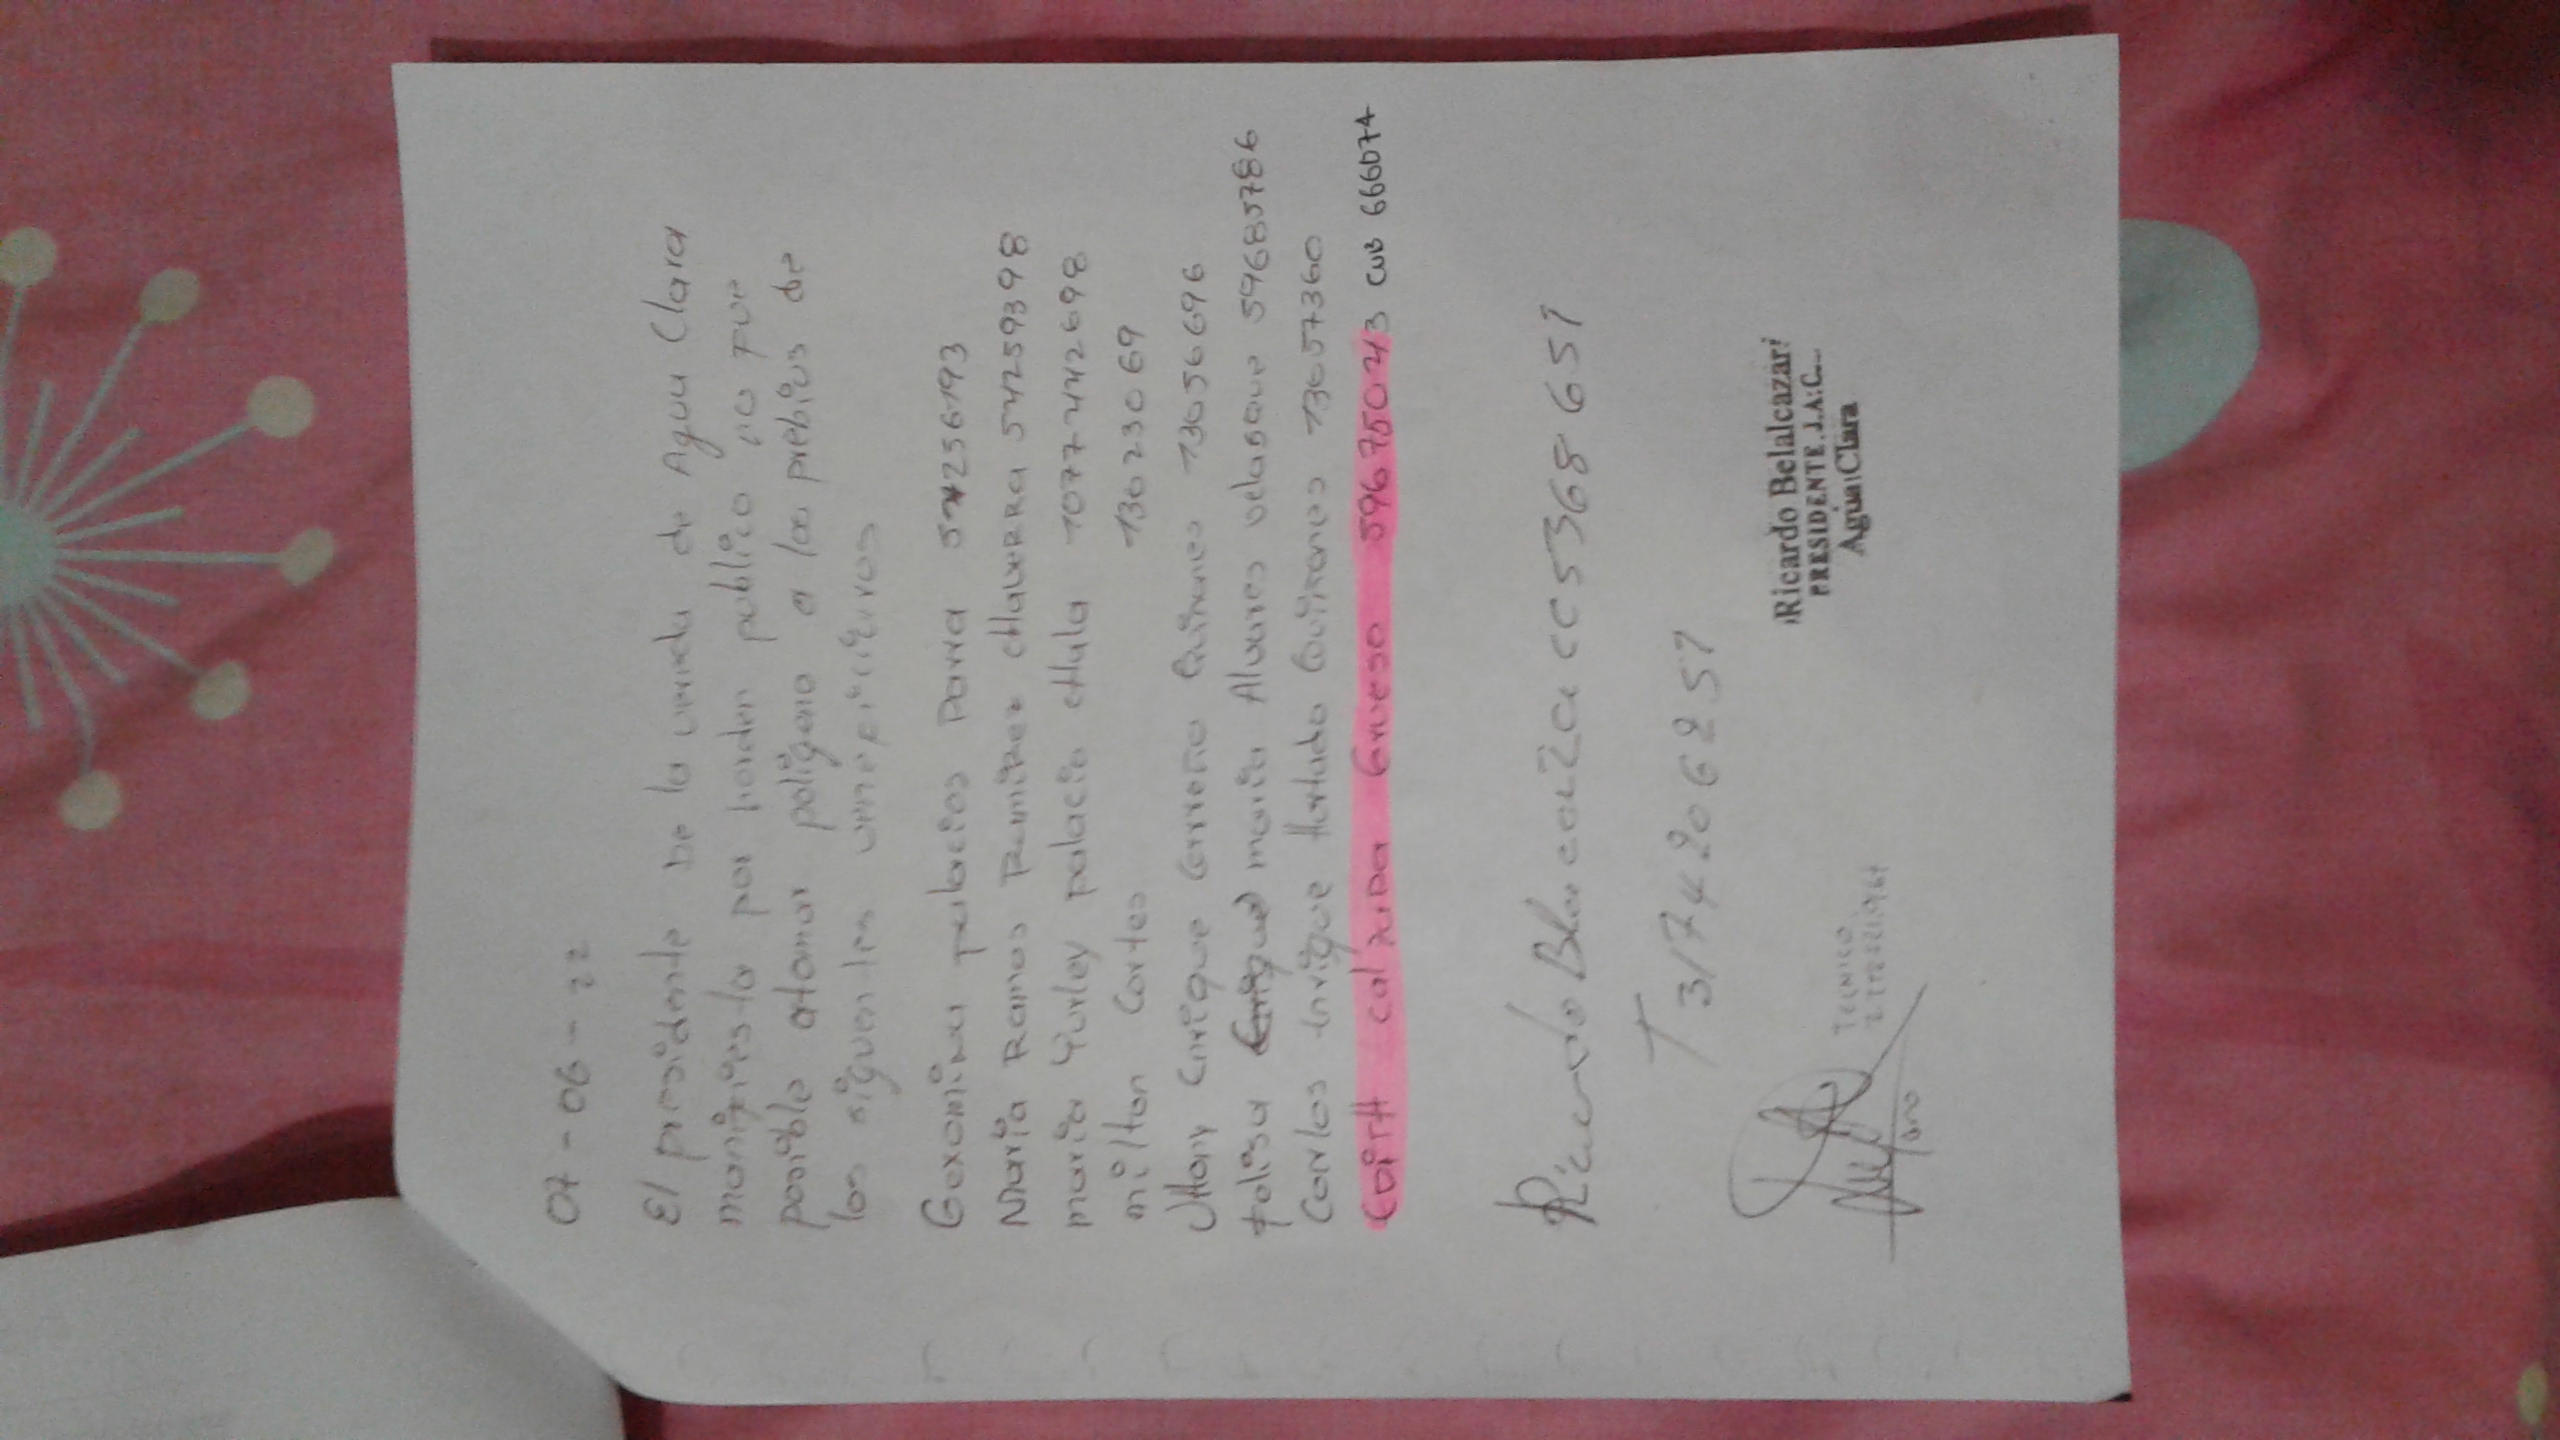 07-06-22
El presidente De la vereda de Agua Clara
manifiesta por horden publico no fue
posible atomar poligono a los prebios de
los siguentes veneficiarios
Geronima palacios Parra 54256193
Maria Ramos Ramirez chaverra 54259398
maria Yurley palacio chala 1077442698
milton Cortes 13023069
Jhony Enrique Cerrato Quinones 13056696
felisa maria Alvares velasque 59685786
Carlos Enrique Hurtado Quinones 13057360
EDITH calzada Grueso 59675043 CUB 666074
Ricardo cc 5368651
T 3174206251
Ricardo Belalcazar
PRESIDENTE J.A.C.
Agua Clara
TECNICO